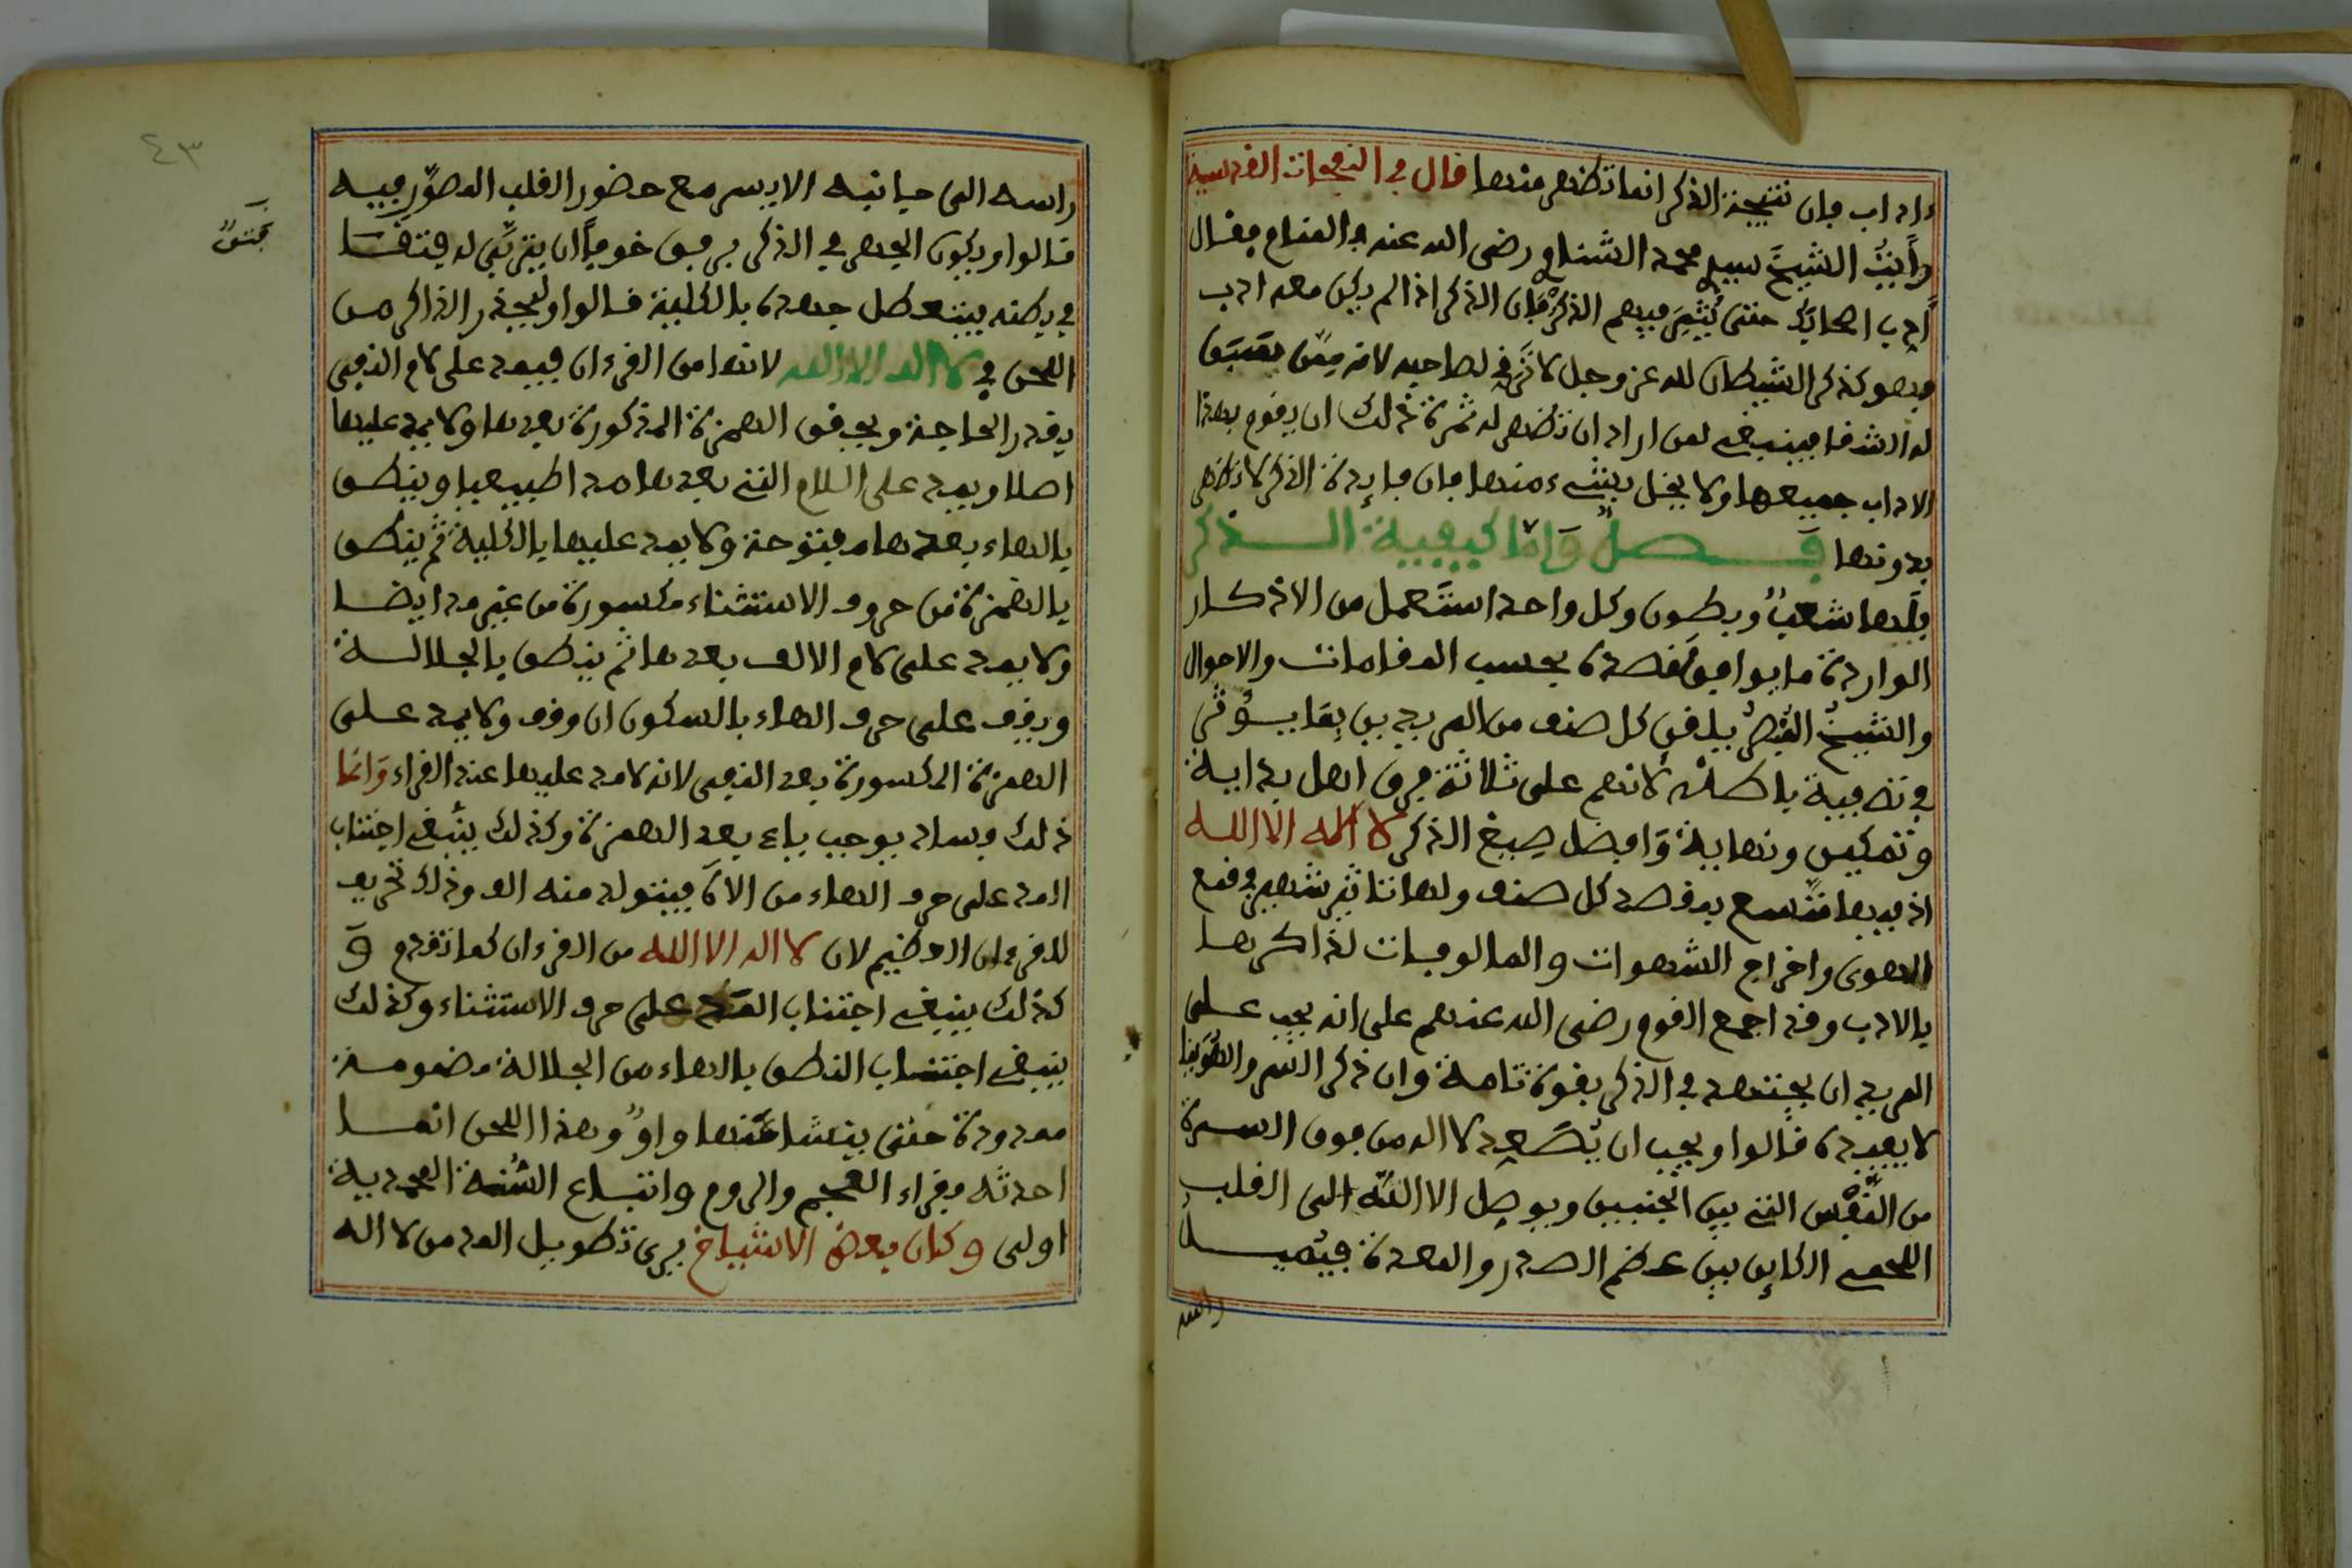 ءاداب فإن نتيجة الذكر انما تظهر منها قال في النفحات القدسية
رأيت الشيخ سيدي محمد الشناوي رضي الله عنه في المنام فقال
أدب اصحابك حتى يثمر فيهم الذكر فإن الذكر اذا لم يكن معه ادب
فهو كذكر الشيطان لله عز وجل لا ترقي لصاحبه لانه ممن
له الشقا فينبغي لمن اراد ان تظهر له ثمرة ذلك ان يقوم بهذا
الاداب جميعها ولا يخل بشيء منها فان فايدة الذكر لا تظهر
بدونها فصل واما كيفية الذكر
فلها شعب وبطون وكل واحد استعمل من الاذكار
الواردة ما يوافق قصده بحسب المقامات والاحوال
والشيخ المربي يلقن كل صنف من المريدين بما يؤثر
في تصفية باطنه لانهم على ثلاثة فرق اهل بداية
وتمكين ونهاية وافضل صيغ الذكر لا اله الا الله
اذ فيها متسع يقصد كل صنف ولها تاثير شهير في قمع
الهوى واخراج الشهوات والمالوفات لذاكرها
بالادب وقد اجمع القوم رضي الله عنهم على انه يجب على
المريد ان يجتهد في الذكر بقوة تامة وان ذكر السر والهوينا
لا يفيده قالوا ويجب ان يصعد لا اله من فوق السرة
من النفس التي بين الجنبين ويوصل الا الله الى القلب
اللحمي الكاين بين عظم الصدر والمعدة فيميل
راسه
٤٣
راسه الى جانبه الايسر مع حضور القلب المصور فيه
قالوا ويكون الجهر في الذكر برفق خوفا ان يتربى له فتقا
في بطنه فيتعطل جهده بالكلية قالوا وليحذر الذاكر من
اللحن في لا اله الا الله لانها من القرءان فيمد على لام النفي
بقدر الحاجة ويحقق الهمزة المذكورة بعدها ولا يمد عليها
اصلا ويمد على اللام التي بعدها مدا طبيعيا وينطق
بالهاء بعدها مفتوحة ولا يمد عليها بالكلية ثم ينطق
بالهمزة من حرف الاستثناء مكسورة من غير مد ايضا
ولا يمد على لام الالف بعدها ثم ينطق بالجلالة
ويقف على حرف الهاء بالسكون ان وقف ولا يمد على
الهمزة المكسورة بعد النفي لانه لا مد عليها عند القراء وانما
ذلك فساد يوجب ياء بعد الهمزة وكذلك ينبغي اجتناب
المد على حرف الهاء من الاه فيتولد منه الف وذلك تحريف
للقرءان العظيم لان لا اله الا الله من القرءان كما تقدم و
كذلك ينبغي اجتناب المد على حرف الاستثناء وكذلك
ينبغي اجتناب النطق بالهاء من الجلالة مضمومة
ممدودة حتى ينشا عنها واو وهذا اللحن انما
احدثه فقراء العجم والروم واتباع السنة المحمدية
اولى وكان بعض الاشياخ يرى تطويل المد من لا اله